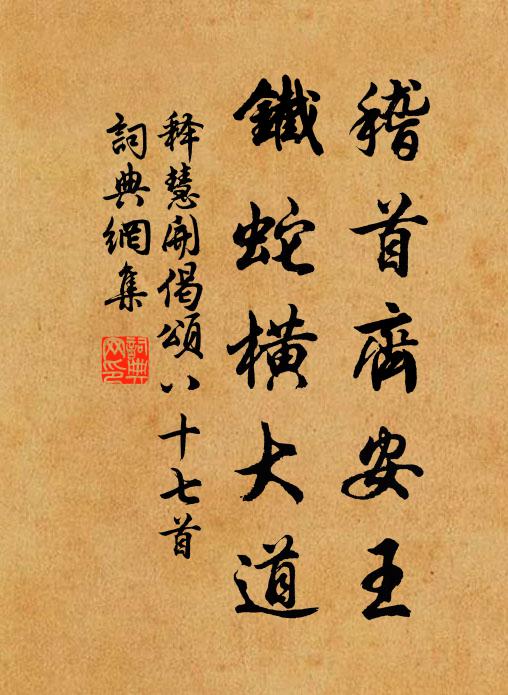 稽首齊安王
鐵蛇橫大道
释慧開偈頌八十七首
詞典網集
詞典
网印